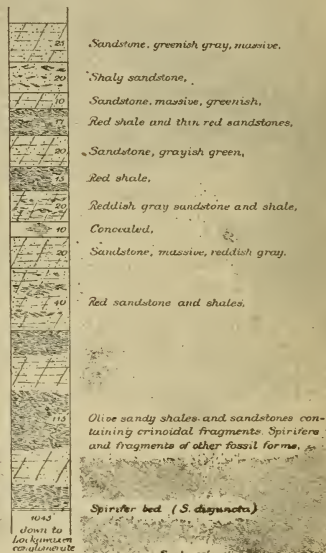 25 Sandstone, greenish gray, massive.
20 Shaly sandstone.
10 Sandstone, massive, greenish.
17 Red shale and thin red sandstones.
20 Sandstone, grayish green.
15 Red shale.
20 Reddish gray sandstone and shale.
10 Concealed.
20 Sandstone, massive, reddish gray.
40 Red sandstone and shales.
113 Olive sandy shales and sandstones con-
taining crinoidal fragments. Spirifers
and fragments of other fossil forms.
Spirifer bed (S. disjuncta)
1043
down to
conglomerate